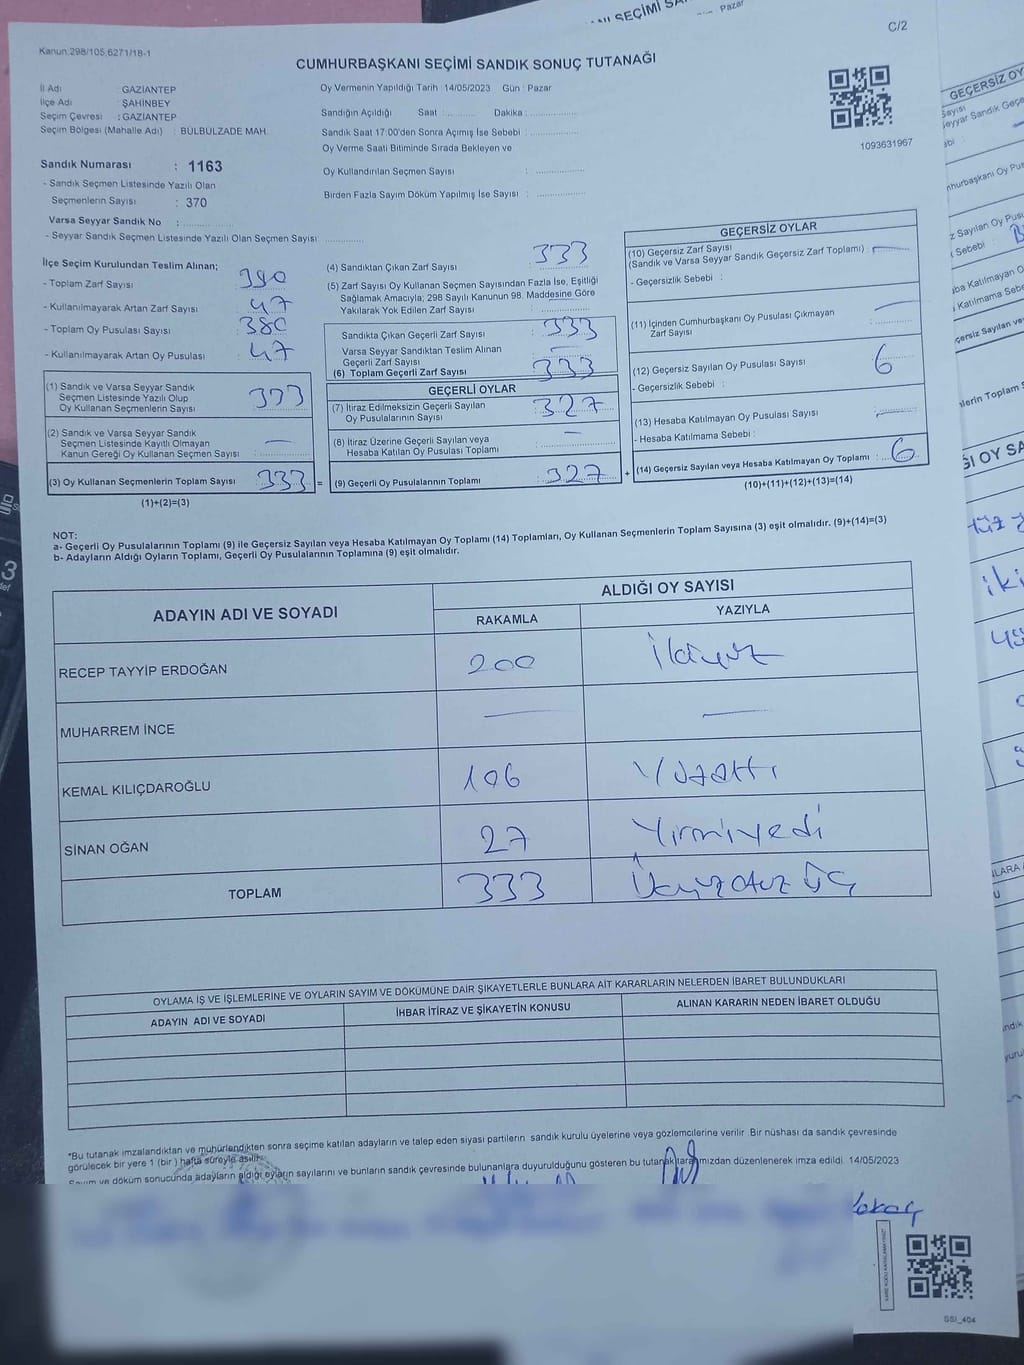 NI SEÇİMİ SA
Pazar
C/2
Kanun:298/105,6271/18-1
CUMHURBAŞKANI SEÇİMİ SANDIK SONUÇ TUTANAĞI
İl Adı : GAZİANTEP
İlçe Adı : ŞAHİNBEY
Seçim Çevresi : GAZİANTEP
Seçim Bölgesi (Mahalle Adı) : BÜLBÜLZADE MAH.
Oy Vermenin Yapıldığı Tarih :14/05/2023 Gün : Pazar
Sandığın Açıldığı Saat : Dakika :
Sandık Saat 17:00'den Sonra Açımış İse Sebebi :
Oy Verme Saati Bitiminde Sırada Bekleyen ve
Oy Kullandırılan Seçmen Sayısı :
Birden Fazla Sayım Döküm Yapılmış İse Sayısı :
1093631967
Sandık Numarası : 1163
- Sandık Seçmen Listesinde Yazılı Olan
Seçmenlerin Sayısı : 370
Varsa Seyyar Sandık No :
- Seyyar Sandık Seçmen Listesinde Yazılı Olan Seçmen Sayısı :
İlçe Seçim Kurulundan Teslim Alınan;
- Toplam Zarf Sayısı : 390
- Kullanılmayarak Artan Zarf Sayısı : 47
- Toplam Oy Pusulası Sayısı : 380
- Kullanılmayarak Artan Oy Pusulası : 47
(1) Sandık ve Varsa Seyyar Sandık
Seçmen Listesinde Yazılı Olup
Oy Kullanan Seçmenlerin Sayısı : 333
(2) Sandık ve Varsa Seyyar Sandık
Seçmen Listesinde Kayıtlı Olmayan
Kanun Gereği Oy Kullanan Seçmen Sayısı : —
(3) Oy Kullanan Seçmenlerin Toplam Sayısı : 333 =
(1)+(2)=(3)
(4) Sandıktan Çıkan Zarf Sayısı : 333
(5) Zarf Sayısı Oy Kullanan Seçmen Sayısından Fazla İse, Eşitliği
Sağlamak Amacıyla; 298 Sayılı Kanunun 98. Maddesine Göre
Yakılarak Yok Edilen Zarf Sayısı :
Sandıkta Çıkan Geçerli Zarf Sayısı : 333
Varsa Seyyar Sandıktan Teslim Alınan
Geçerli Zarf Sayısı : —
(6) Toplam Geçerli Zarf Sayısı : 333
GEÇERLİ OYLAR
(7) İtiraz Edilmeksizin Geçerli Sayılan
Oy Pusulalarının Sayısı : 327
(8) İtiraz Üzerine Geçerli Sayılan veya
Hesaba Katılan Oy Pusulası Toplamı : —
(9) Geçerli Oy Pusulalarının Toplamı : 327 +
GEÇERSİZ OYLAR
(10) Geçersiz Zarf Sayısı
(Sandık ve Varsa Seyyar Sandık Geçersiz Zarf Toplamı) : —
- Geçersizlik Sebebi :
(11) İçinden Cumhurbaşkanı Oy Pusulası Çıkmayan
Zarf Sayısı : —
(12) Geçersiz Sayılan Oy Pusulası Sayısı : 6
- Geçersizlik Sebebi :
(13) Hesaba Katılmayan Oy Pusulası Sayısı : —
- Hesaba Katılmama Sebebi :
(14) Geçersiz Sayılan veya Hesaba Katılmayan Oy Toplamı : 6
(10)+(11)+(12)+(13)=(14)
NOT:
a- Geçerli Oy Pusulalarının Toplamı (9) ile Geçersiz Sayılan veya Hesaba Katılmayan Oy Toplamı (14) Toplamları, Oy Kullanan Seçmenlerin Toplam Sayısına (3) eşit olmalıdır. (9)+(14)=(3)
b- Adayların Aldığı Oyların Toplamı, Geçerli Oy Pusulalarının Toplamına (9) eşit olmalıdır.
ADAYIN ADI VE SOYADI
ALDIĞI OY SAYISI
RAKAMLA YAZIYLA
RECEP TAYYİP ERDOĞAN 200 İkiyüz
MUHARREM İNCE — —
KEMAL KILIÇDAROĞLU 106 Yüzaltı
SİNAN OĞAN 27 Yirmiyedi
TOPLAM 333 Üçyüzotuz üç
OYLAMA İŞ VE İŞLEMLERİNE VE OYLARIN SAYIM VE DÖKÜMÜNE DAİR ŞİKAYETLERLE BUNLARA AİT KARARLARIN NELERDEN İBARET BULUNDUKLARI
ADAYIN ADI VE SOYADI İHBAR İTİRAZ VE ŞİKAYETİN KONUSU ALINAN KARARIN NEDEN İBARET OLDUĞU
*Bu tutanak imzalandıktan ve mühürlendikten sonra seçime katılan adayların ve talep eden siyasi partilerin sandık kurulu üyelerine veya gözlemcilerine verilir. Bir nüshası da sandık çevresinde
görülecek bir yere 1 (bir) hafta süreyle asılır.
Sayım ve döküm sonucunda adayların aldığı oyların sayılarını ve bunların sandık çevresinde bulunanlara duyurulduğunu gösteren bu tutanak tarafımızdan düzenlenerek imza edildi. 14/05/2023
SSI_404